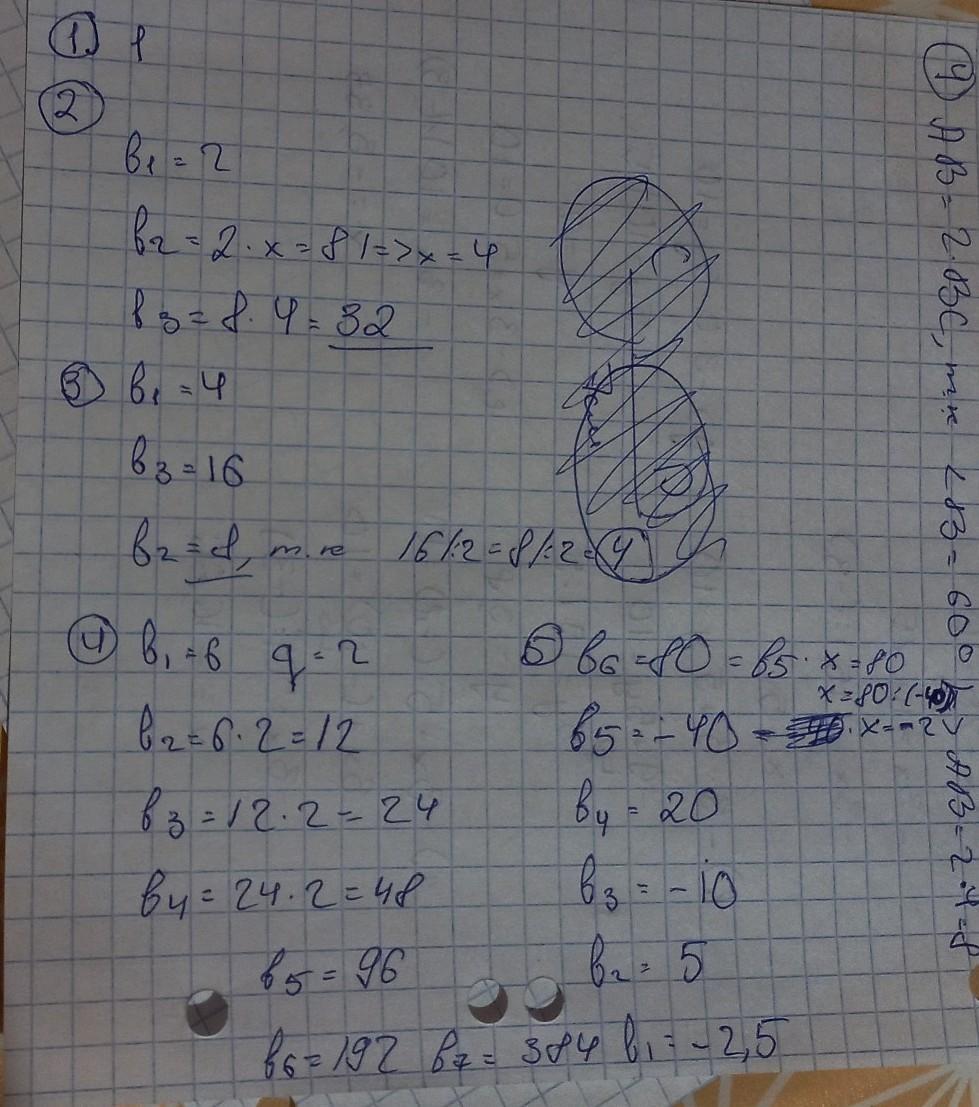 ① 1
②
b₁ = 2
b₂ = 2 · x = 8 | => x = 4
b₃ = 8 · 4 = 32
③ b₁ = 4
b₃ = 16
b₂ = 8, т.к 16 |:2 = 8 |:2 = 4
④ b₁ = 6 q = 2
b₂ = 6 · 2 = 12
b₃ = 12 · 2 = 24
b₄ = 24 · 2 = 48
b₅ = 96
b₆ = 192 b₇ = 384
⑤ b₆ = 80 = b₅ · x = 80
x = 80 : (-40)
b₅ = -40 · x = -2
b₄ = 20
b₃ = -10
b₂ = 5
b₁ = -2,5
④ AB = 2·BC, т.к ∠B = 60° => AB = 2·4 = 8